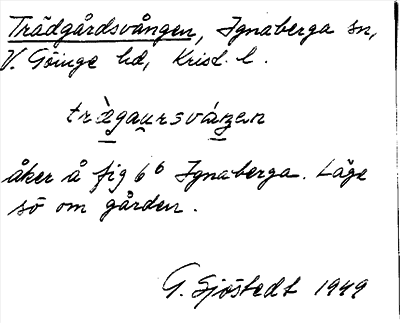 Trädgårdsvången, Ignaberga sn,
V. Göinge hd, Krist. l.
åker å fig 6⁶ Ignaberga. Läge
sö om gården.
G. Sjöstedt 1949